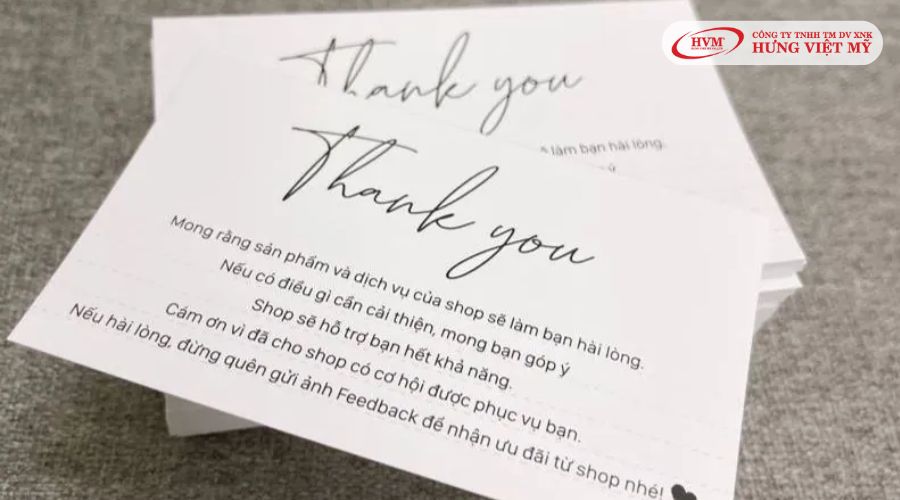 HVM
CÔNG TY TNHH TM DV XNK
HƯNG VIỆT MỸ
Thank you
làm bạn hài lòng.
ý
Thank you
Mong rằng sản phẩm và dịch vụ của shop sẽ làm bạn hài lòng.
Nếu có điều gì cần cải thiện, mong bạn góp ý
Shop sẽ hỗ trợ bạn hết khả năng.
Cám ơn vì đã cho shop có cơ hội được phục vụ bạn.
Nếu hài lòng, đừng quên gửi ảnh Feedback để nhận ưu đãi từ shop nhé! 🖤